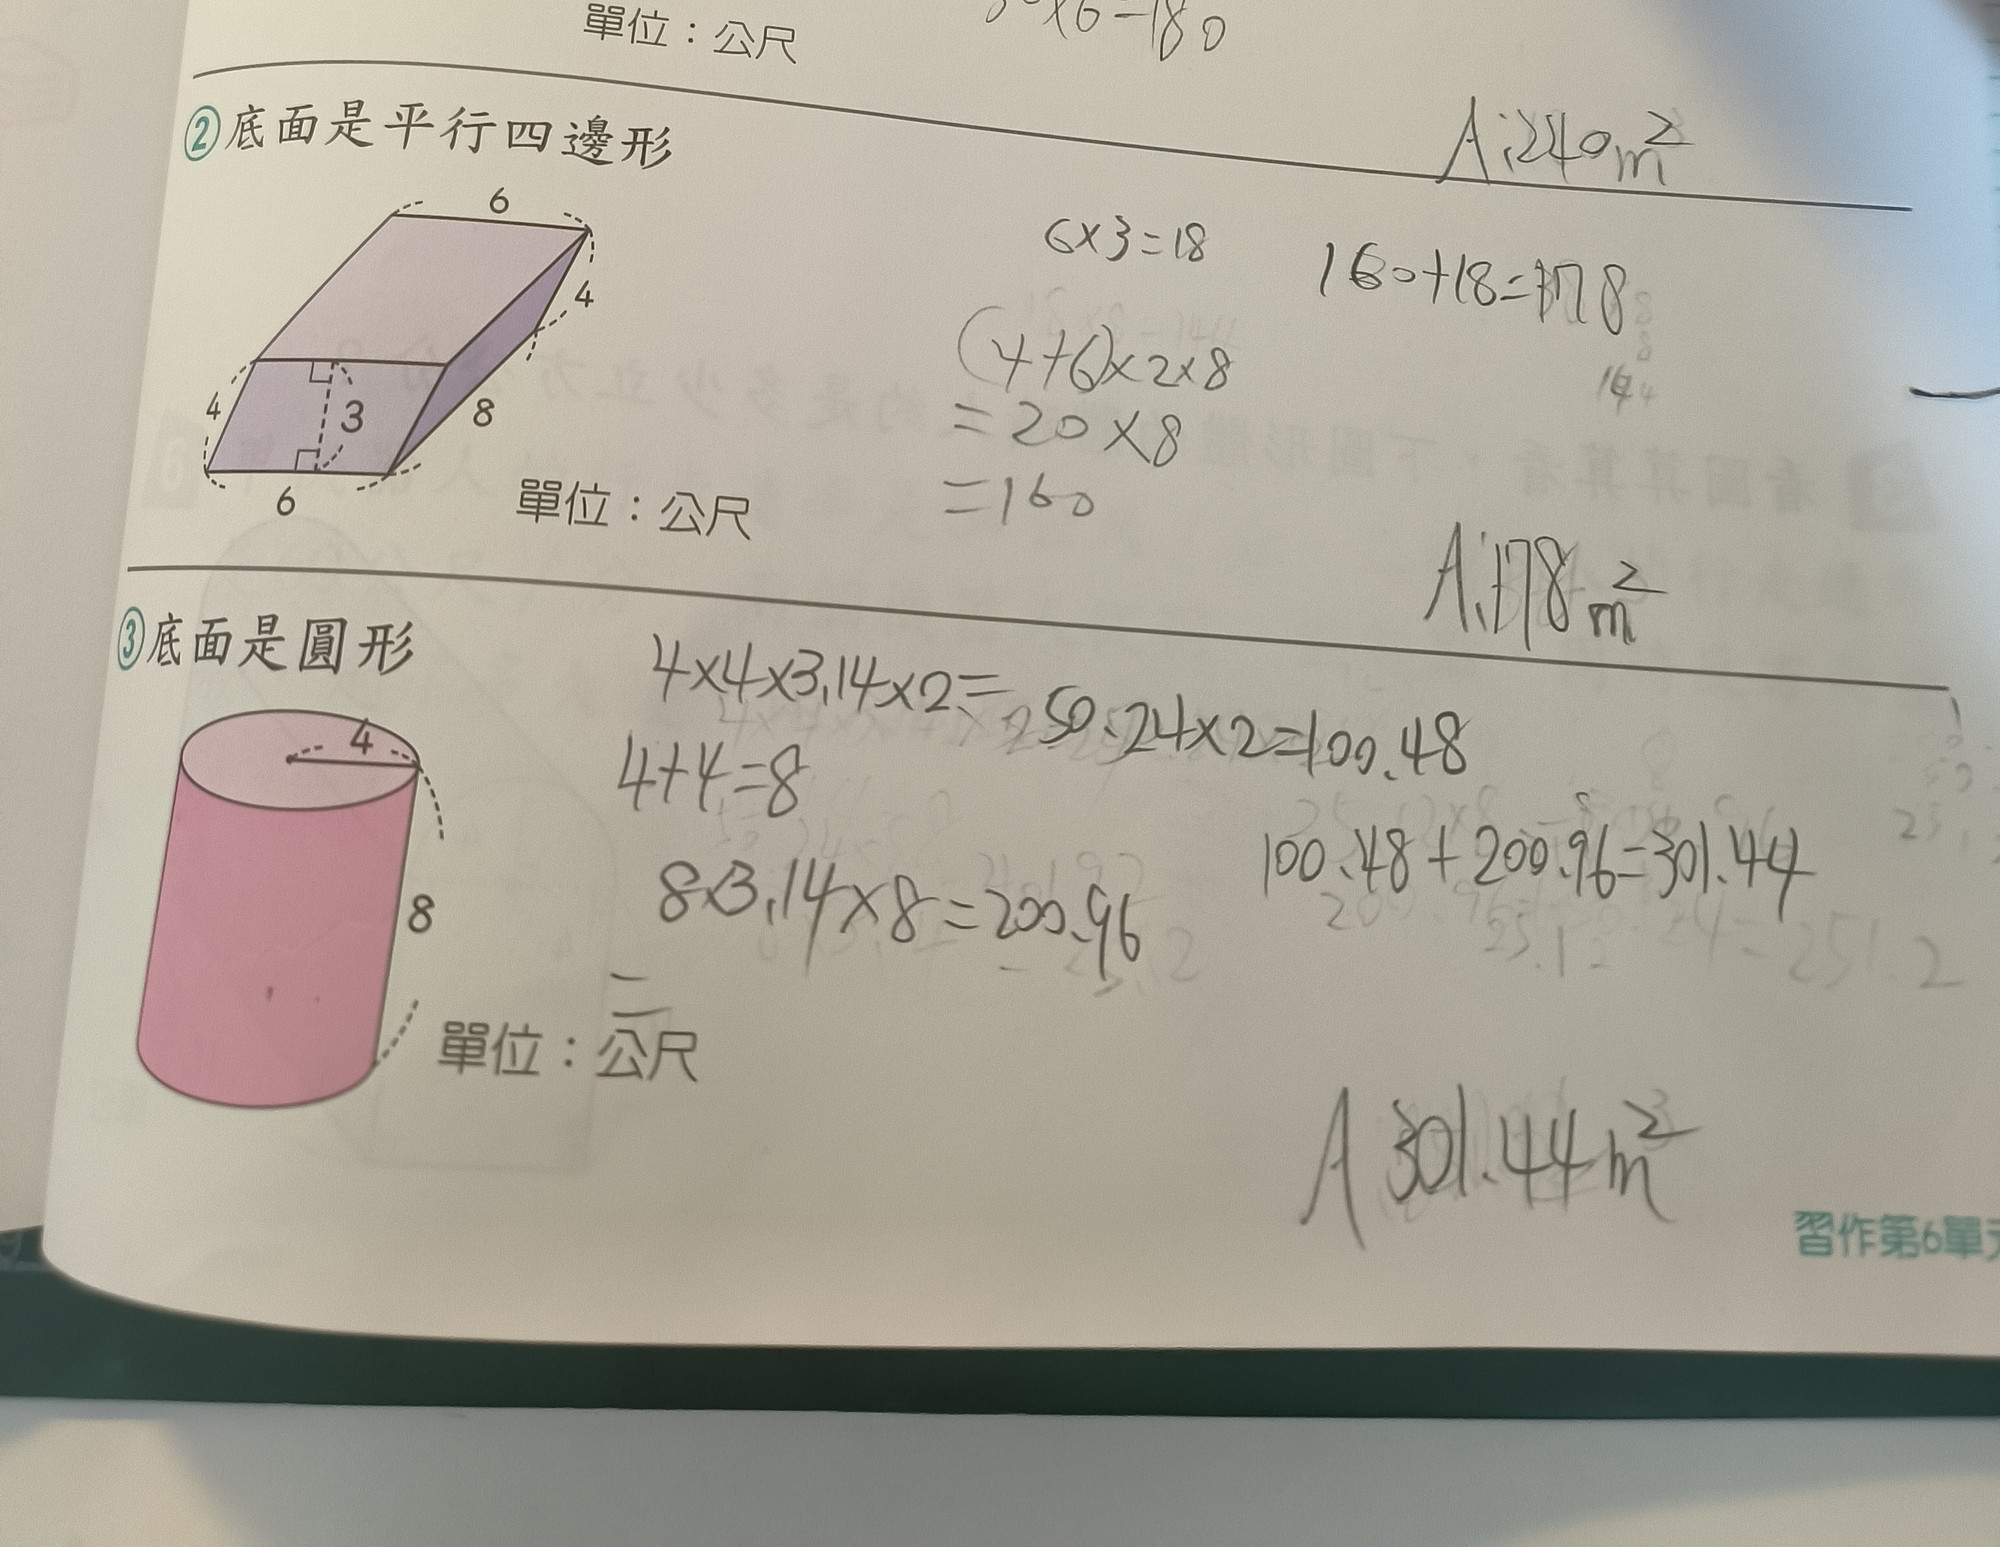 單位：公尺
×6=180
A:240m²
②底面是平行四邊形
6
4
4
3
8
6
單位：公尺
6×3=18
160+18=178
(4+6)×2×8
=20×8
=160
A:178m²
③底面是圓形
4
8
單位：公尺
4×4×3.14×2=50.24×2=100.48
4+4=8
8×3.14×8=200.96
=
100.48+200.96=301.44
A 301.44m²
習作第6單